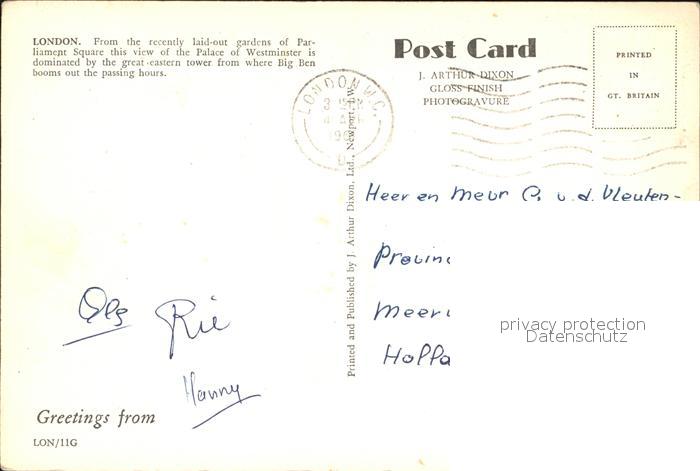 LONDON. From the recently laid-out gardens of Par-
liament Square this view of the Palace of Westminster is
dominated by the great eastern tower from where Big Ben
booms out the passing hours.
Post Card
J. ARTHUR DIXON
GLOSS FINISH
PHOTOGRAVURE
PRINTED
IN
GT. BRITAIN
LONDON W.C.
Printed and Published by J. Arthur Dixon, Ltd., Newport, I.W.
Heer en Mevr v. d. Vleuten-
Provin
Meer
Holla
privacy protection
Datenschutz
Rie
Hanny
Greetings from
LON/11G